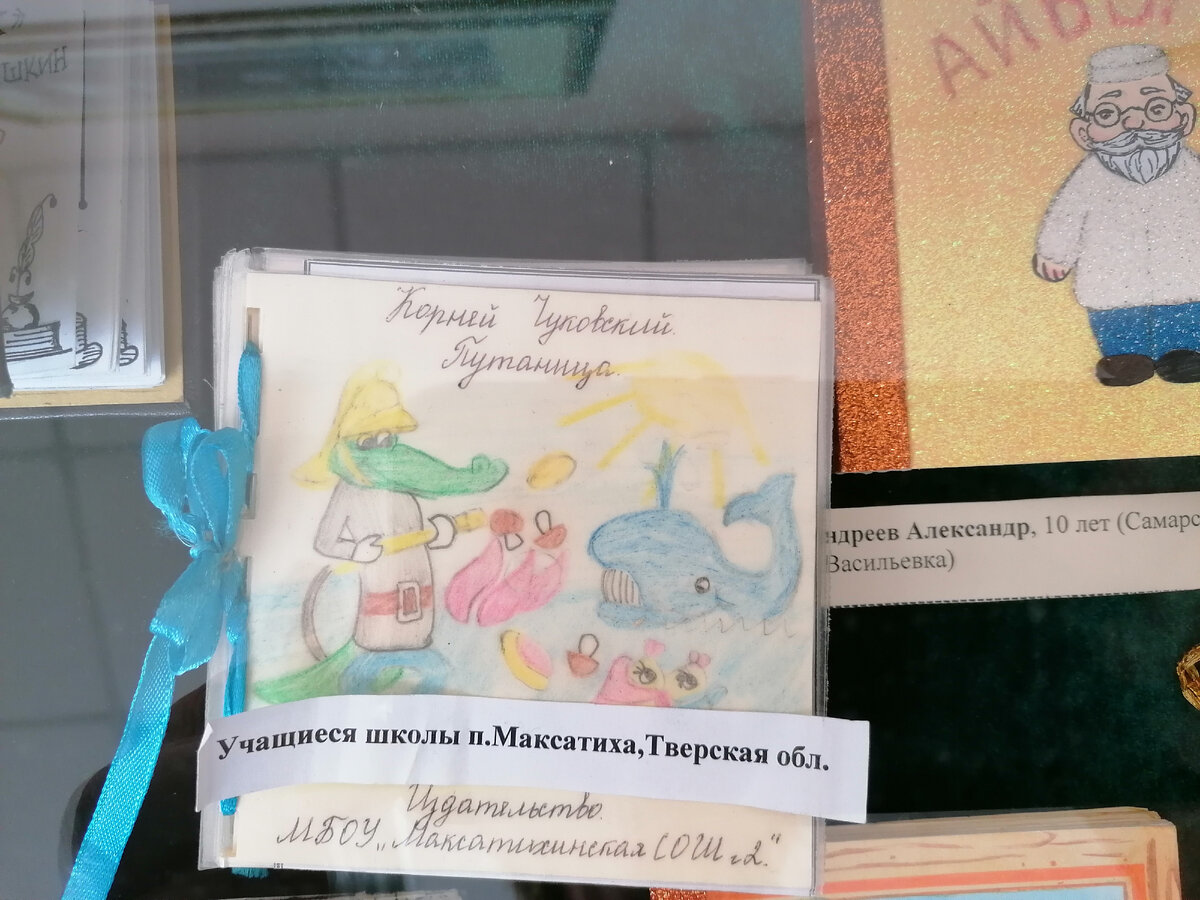 АЙБО
Корней Чуковский.
Путаница.
ндреев Александр, 10 лет (Самарс
Васильевка)
Учащиеся школы п.Максатиха,Тверская обл.
Издательство.
МБОУ „Максатихинская СОШ №2."
шкин